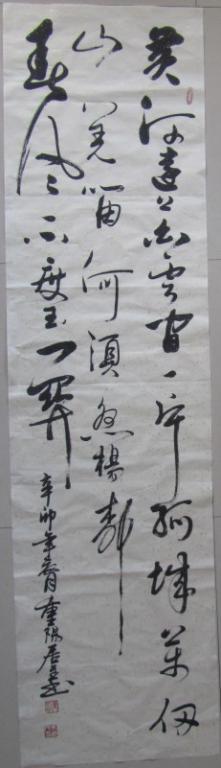 黄河远上白云间一片孤城万仞
山羌笛何须怨杨柳
春风不度玉门关
辛卯年春月重阳居